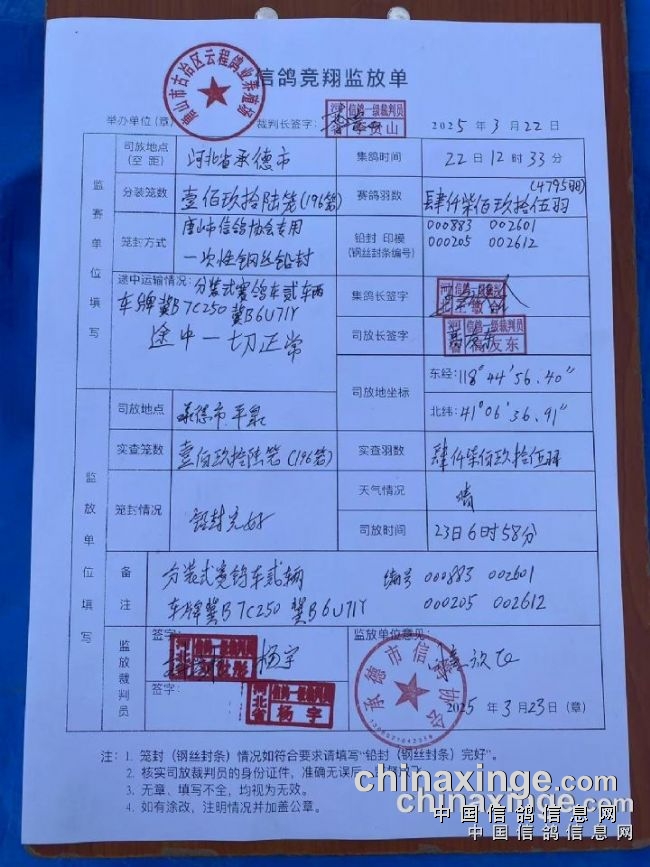 信鸽竞翔监放单
唐山市古冶区云程鸽业养殖场
举办单位(章)
裁判长签字:
信鸽一级裁判员
2025 年 3 月 22 日
监赛单位填写
司放地点(空距)
河北省承德市
集鸽时间
22 日 12 时 33 分
分装笼数
壹佰玖拾陆笼(196笼)
赛鸽羽数
肆仟柒佰玖拾伍羽
(4795羽)
笼封方式
唐山市信鸽协会专用
一次性钢丝铅封
铅封 印模
(钢丝封条编号)
000883 002601
000205 002612
途中运输情况:分装式赛鸽车贰车两
车牌冀B7C250 冀B6U71Y
途中一切正常
集鸽长签字
司放长签字
信鸽一级裁判员
友东
司放地坐标
东经:118°44′56.40″
北纬:41°06′36.91″
监放单位填写
司放地点
承德市.平泉
实查笼数
壹佰玖拾陆笼(196笼)
实查羽数
肆仟柒佰玖拾伍羽
笼封情况
铅封完好
天气情况
晴
司放时间
23日6时58分
备注
分装式赛鸽车贰辆 编号 000883 002601
车牌冀B7C250 冀B6U71Y 000205 002612
监放裁判员
签字:
杨宇
签字:
河北省
信鸽一级裁判员
杨宇
监放单位意见:
承德市信鸽协会
2025 年 3 月 23 日 (章)
注: 1. 笼封(钢丝封条)情况如符合要求请填写“铅封(钢丝封条)完好”。
2. 核实司放裁判员的身份证件,准确无误后
3. 无章、填写不全,均视为无效。
4. 如有涂改,注明情况并加盖公章。
chinaxinge.com
chinaxinge.com
中国信鸽信息网
中国信鸽信息网